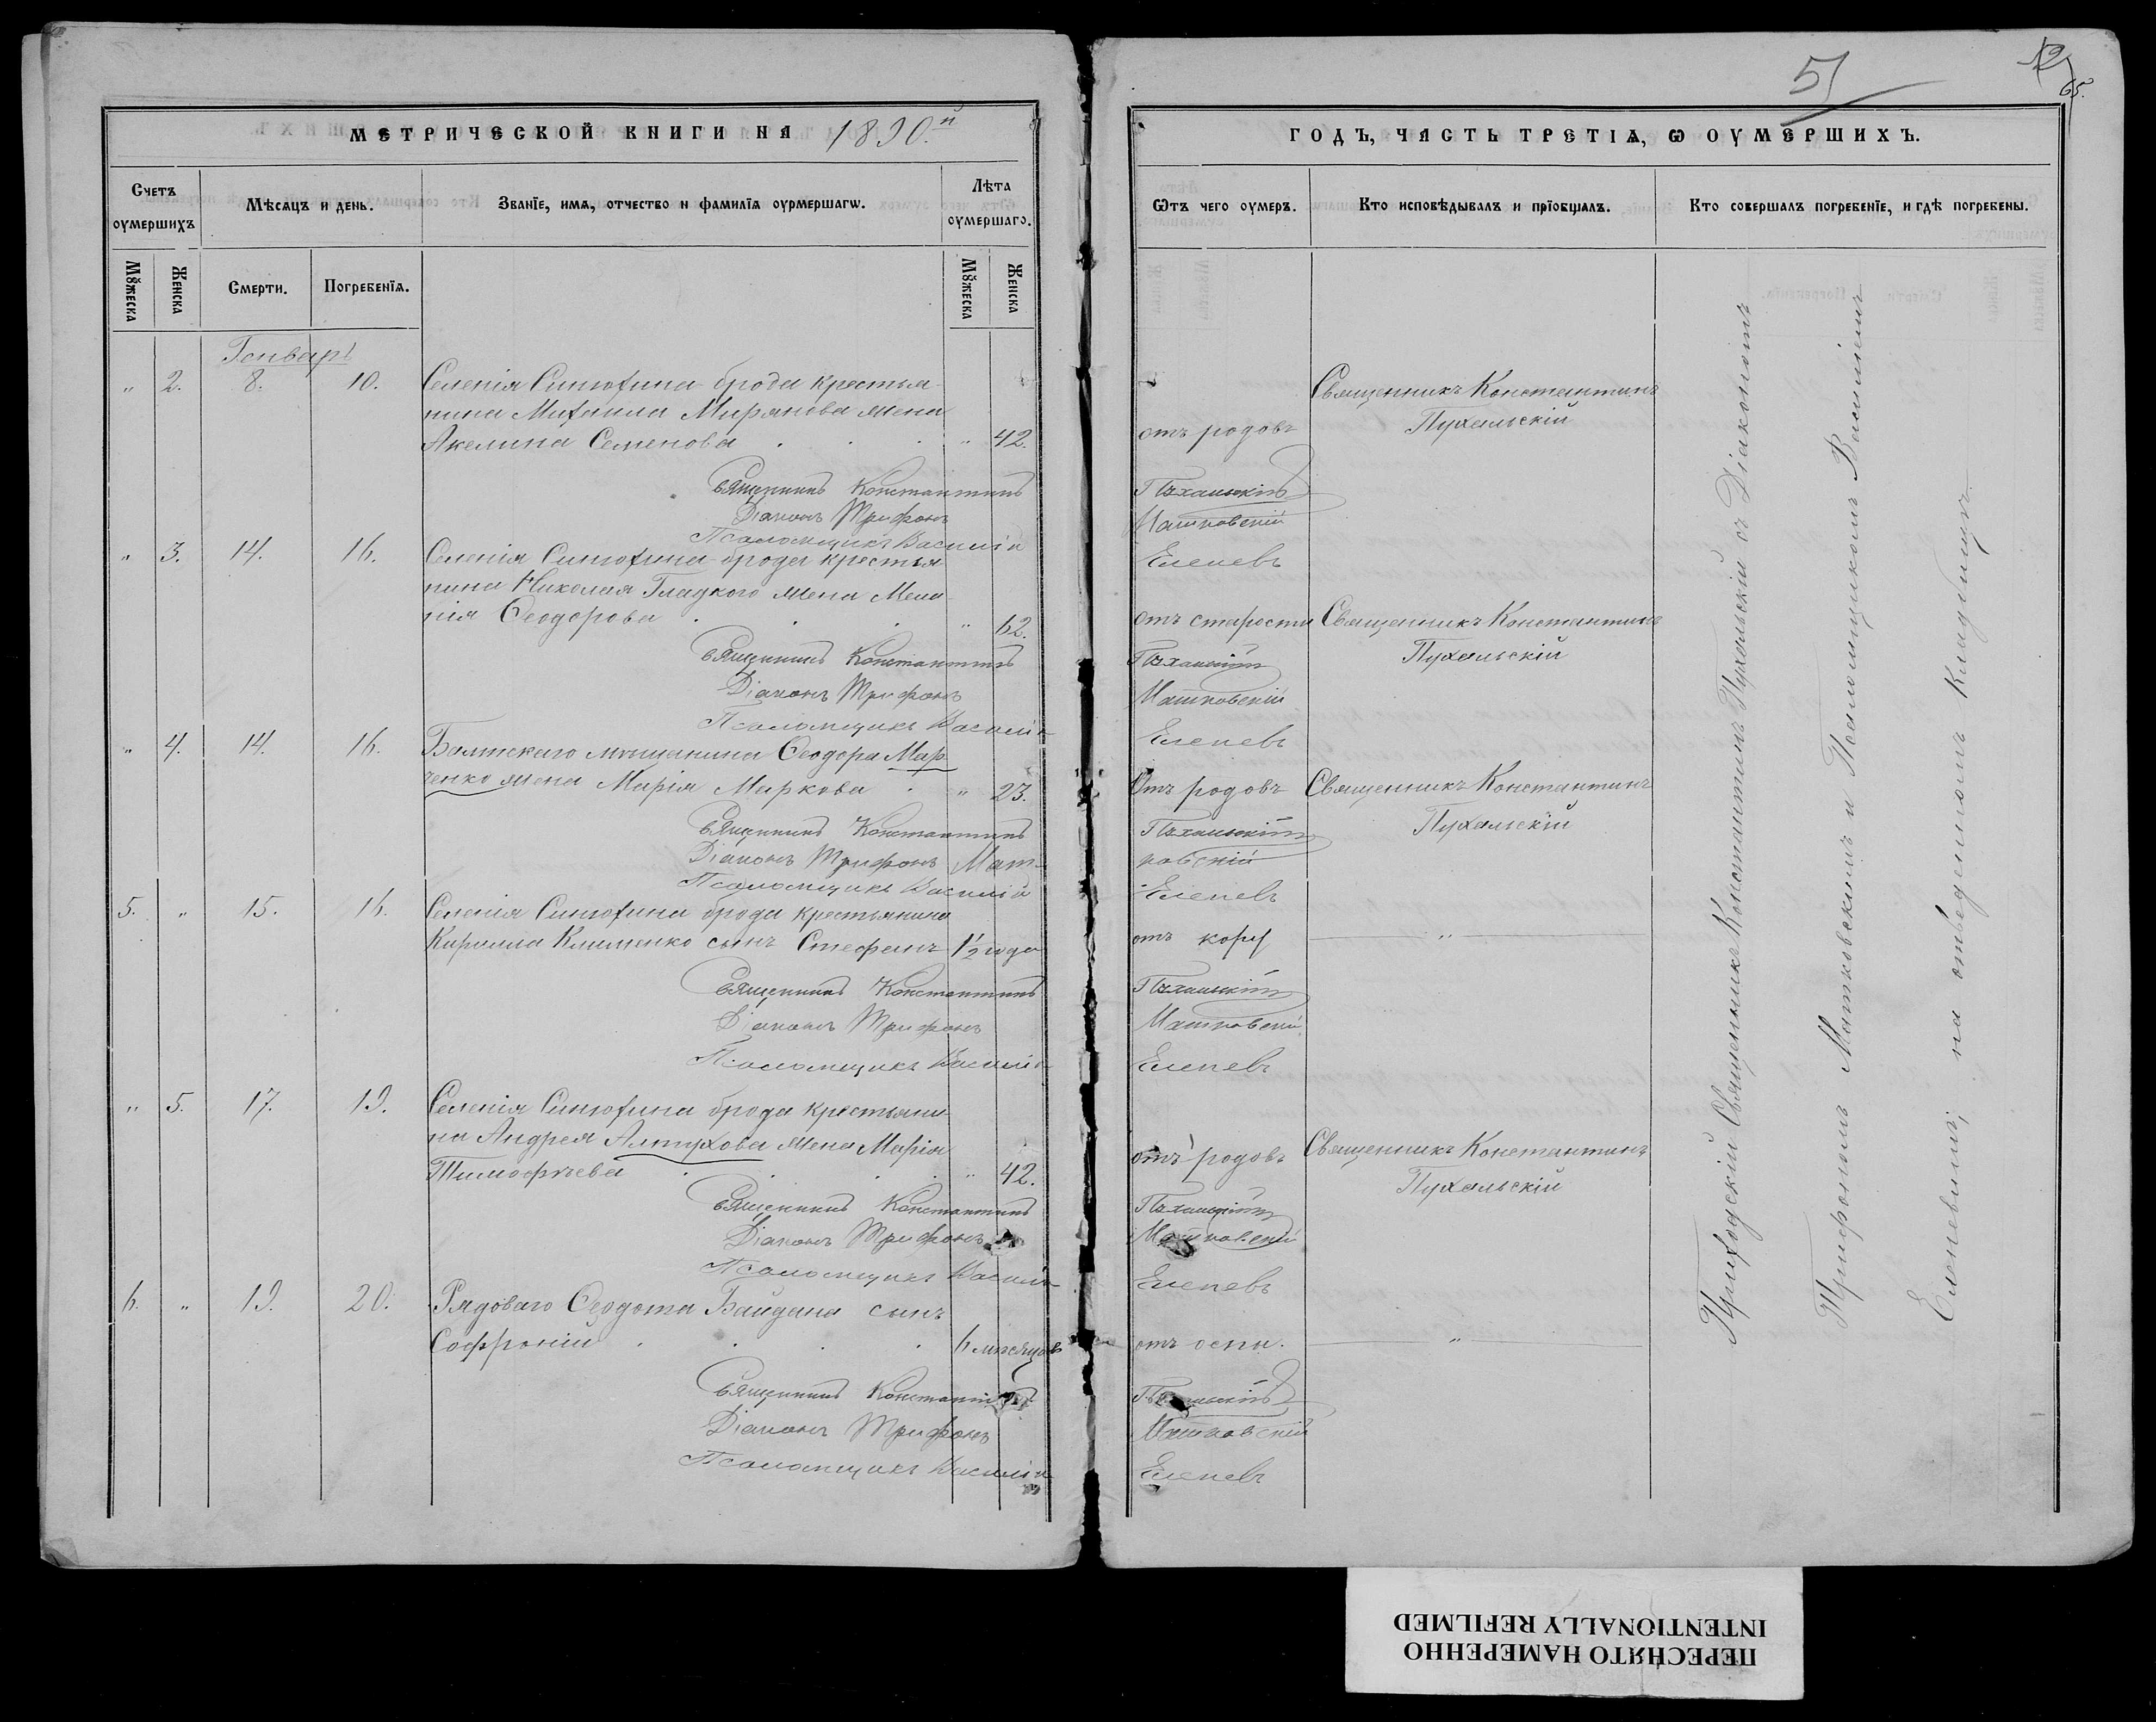 51
65.
МЕТРИЧЕСКОЙ КНИГИ НА 1890.й
ГОДЪ, ЧАСТЬ ТРЕТІѦ, Ѡ ОУМЕРШИХЪ.
Счетъ оумершихъ
Мѣсѧцъ и день.
Званїе, имѧ, отчество и фамилїѧ оурмершагѡ.
Лѣта оумершаго.
Ѿтъ чего оумеръ.
Кто исповѣдывалъ и прїобщалъ.
Кто совершалъ погребенїе, и гдѣ погребены.
Мꙋжеска
Женска
Смерти.
Погребенїѧ.
Мꙋжеска
Женска
Генварь
" 2. 8. 10. Селенія Синюхина брода крестья-
нина Михаила Мирянова жена
Акелина Семенова . . . " 42. отъ родовъ
Священникъ Константинъ
Пухальскій
Священникъ Константинъ Пухальскій
Діаконъ Трифонъ Матковскій
Псаломщикъ Василій Еленевъ
" 3. 14. 16. Селенія Синюхина брода крестья
нина Николая Гладкого жена Мела-
нія Ѳеодорова . . . " 62. отъ старости Священникъ Константинъ
Пухальскій
Священникъ Константинъ Пухальскій
Діаконъ Трифонъ Матковскій
Псаломщикъ Василій Еленевъ
" 4. 14. 16. Балтскаго мѣщанина Ѳеодора Мар-
ченко жена Марія Маркова . " 23. Отъ родовъ Священникъ Константинъ
Пухальскій
Священникъ Константинъ Пухальскій
Діаконъ Трифонъ Матковскій
Псаломщикъ Василій Еленевъ
5. " 15. 16. Селенія Синюхина брода крестьянина
Кирилла Клименко сынъ Стефанъ 1½ года отъ "
Священникъ Константинъ Пухальскій
Діаконъ Трифонъ Матковскій
Псаломщикъ Василій Еленевъ
" 5. 17. 19. Селенія Синюхина брода крестьяни-
на Андрея Алтухова жена Марія
Тимофѣева . . . " 42. отъ родовъ Священникъ Константинъ
Пухальскій
Священникъ Константинъ Пухальскій
Діаконъ Трифонъ Матковскій
Псаломщикъ Василій Еленевъ
6. " 19. 20. Рядоваго Ѳеодота Байдана сынъ
Софроній . . . . 6 мѣсяцовъ отъ оспы. "
Священникъ Константинъ Пухальскій
Діаконъ Трифонъ Матковскій
Псаломщикъ Василій Еленевъ
Приходскій Священникъ Константинъ Пухальскій съ Діакономъ
Трифономъ Матковскимъ и Псаломщикомъ Василіемъ
Еленевымъ, на отведенномъ кладбищѣ.
ПЕРЕСНЯТО НАМЕРЕННО
INTENTIONALLY REFILMED